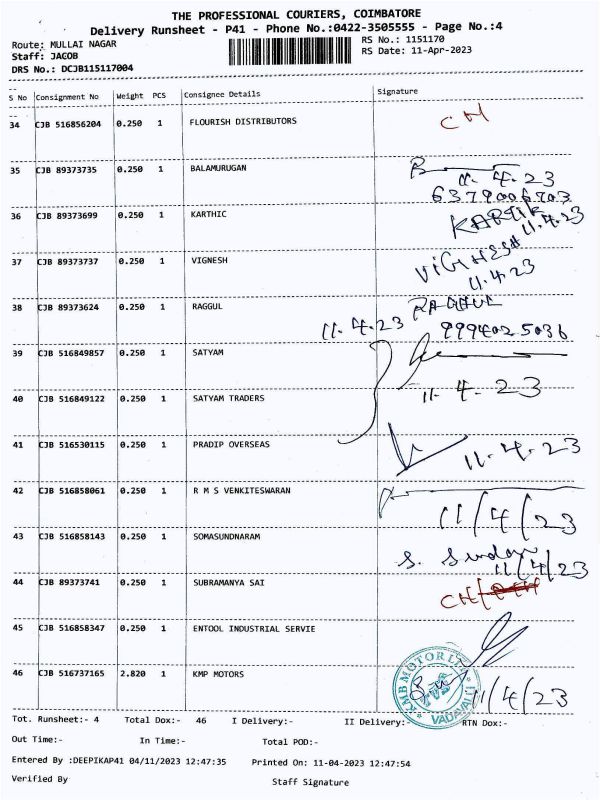 THE PROFESSIONAL COURIERS, COIMBATORE
Delivery Runsheet - P41 - Phone No.:0422-3505555 - Page No.:4
Route: MULLAI NAGAR RS No.: 1151170
Staff: JACOB RS Date: 11-Apr-2023
DRS No.: DCJB115117004
S No Consignment No Weight PCS Consignee Details Signature
34 CJB 516856204 0.250 1 FLOURISH DISTRIBUTORS CH
35 CJB 89373735 0.250 1 BALAMURUGAN
11.4.23
6379006703
36 CJB 89373699 0.250 1 KARTHIC KARTIK
11.4.23
37 CJB 89373737 0.250 1 VIGNESH VIGHNESH
11.4.23
38 CJB 89373624 0.250 1 RAGGUL RAGHUL
11.4.23 9994025036
39 CJB 516849857 0.250 1 SATYAM
40 CJB 516849122 0.250 1 SATYAM TRADERS 11-4-23
41 CJB 516530115 0.250 1 PRADIP OVERSEAS 11.4.23
42 CJB 516858061 0.250 1 R M S VENKITESWARAN
11/4/23
43 CJB 516858143 0.250 1 SOMASUNDNARAM S. Sundar
11/4/23
44 CJB 89373741 0.250 1 SUBRAMANYA SAI CH/
45 CJB 516858347 0.250 1 ENTOOL INDUSTRIAL SERVIE
46 CJB 516737165 2.820 1 KMP MOTORS 11/4/23
KMB MOTOR LTD
VADAVALLI
Tot. Runsheet:- 4 Total Dox:- 46 I Delivery:- II Delivery:- RTN Dox:-
Out Time:- In Time:- Total POD:-
Entered By :DEEPIKAP41 04/11/2023 12:47:35 Printed On: 11-04-2023 12:47:54
Verified By Staff Signature